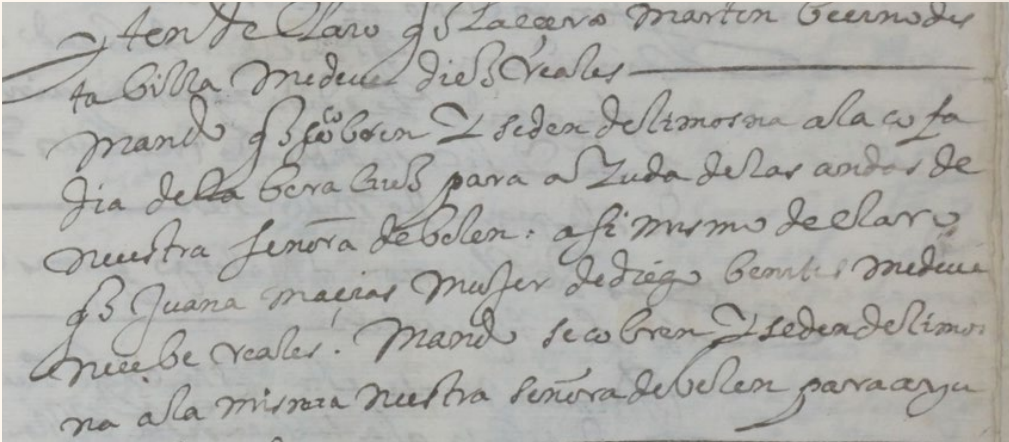 yten declaro q̃ Lacaro martin becino des
ta billa me deue dies Reales
mando q̃ se cobren y se den de limosna a la cofa
dia de la bera crus para aYuda de las andas de
nuestra señora de belen. asi mismo declaro
q̃ Juana maçias muger de diego benites me deue
nuebe reales. mando se cobren y se den de limos
na a la misma nuestra señora de belen para ayu